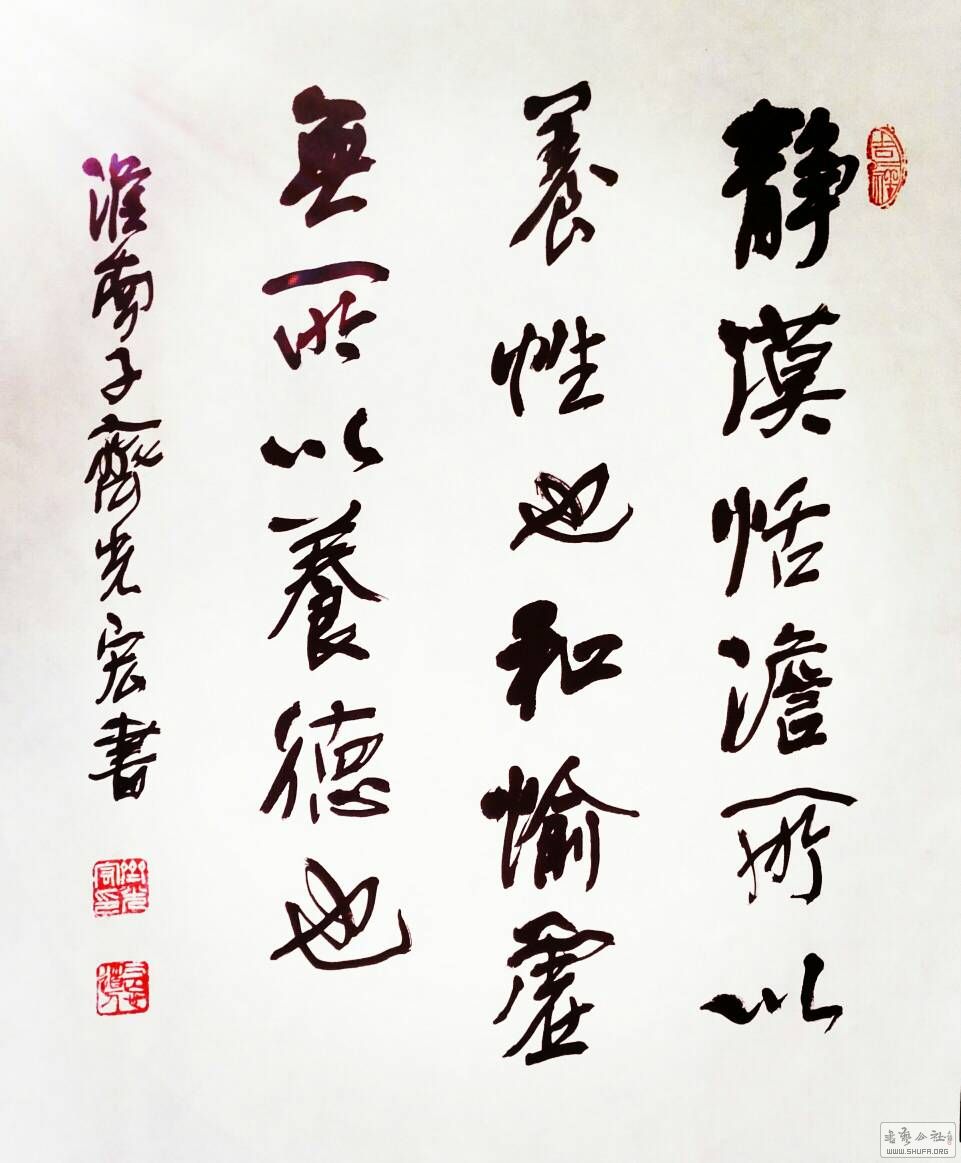 吉祥
静漠恬澹所以
養性也和愉虛
無所以養德也
淮南子齊光宏書
書藝公社
WWW.SHUFA.ORG